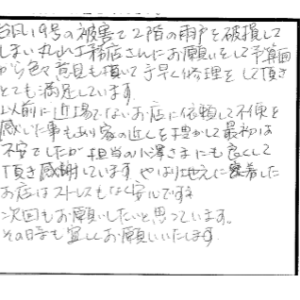 台風19号の被害で2階の雨戸を破損して
しまい丸山工務店さんにお願いをして予算面
から色々意見も頂いて手早く修理をして頂き
とても満足しています。
以前に近場でないお店に依頼して不便を
感じた事もあり家の近くを捜して最初は
不安でしたが担当の小澤さまにも良くして
頂き感謝しています やはり地元に密着した
お店はストレスもなく安心です
次回もお願いしたいと思っています。
その時も宜しくお願いいたします